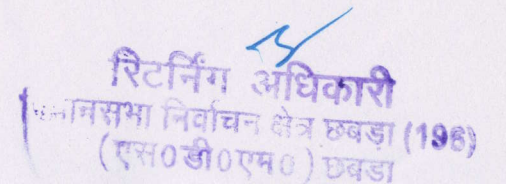 रिटर्निंग अधिकारी
निर्वाचन क्षेत्र छबड़ा (196)
(एस०डी०एम०) छबडा